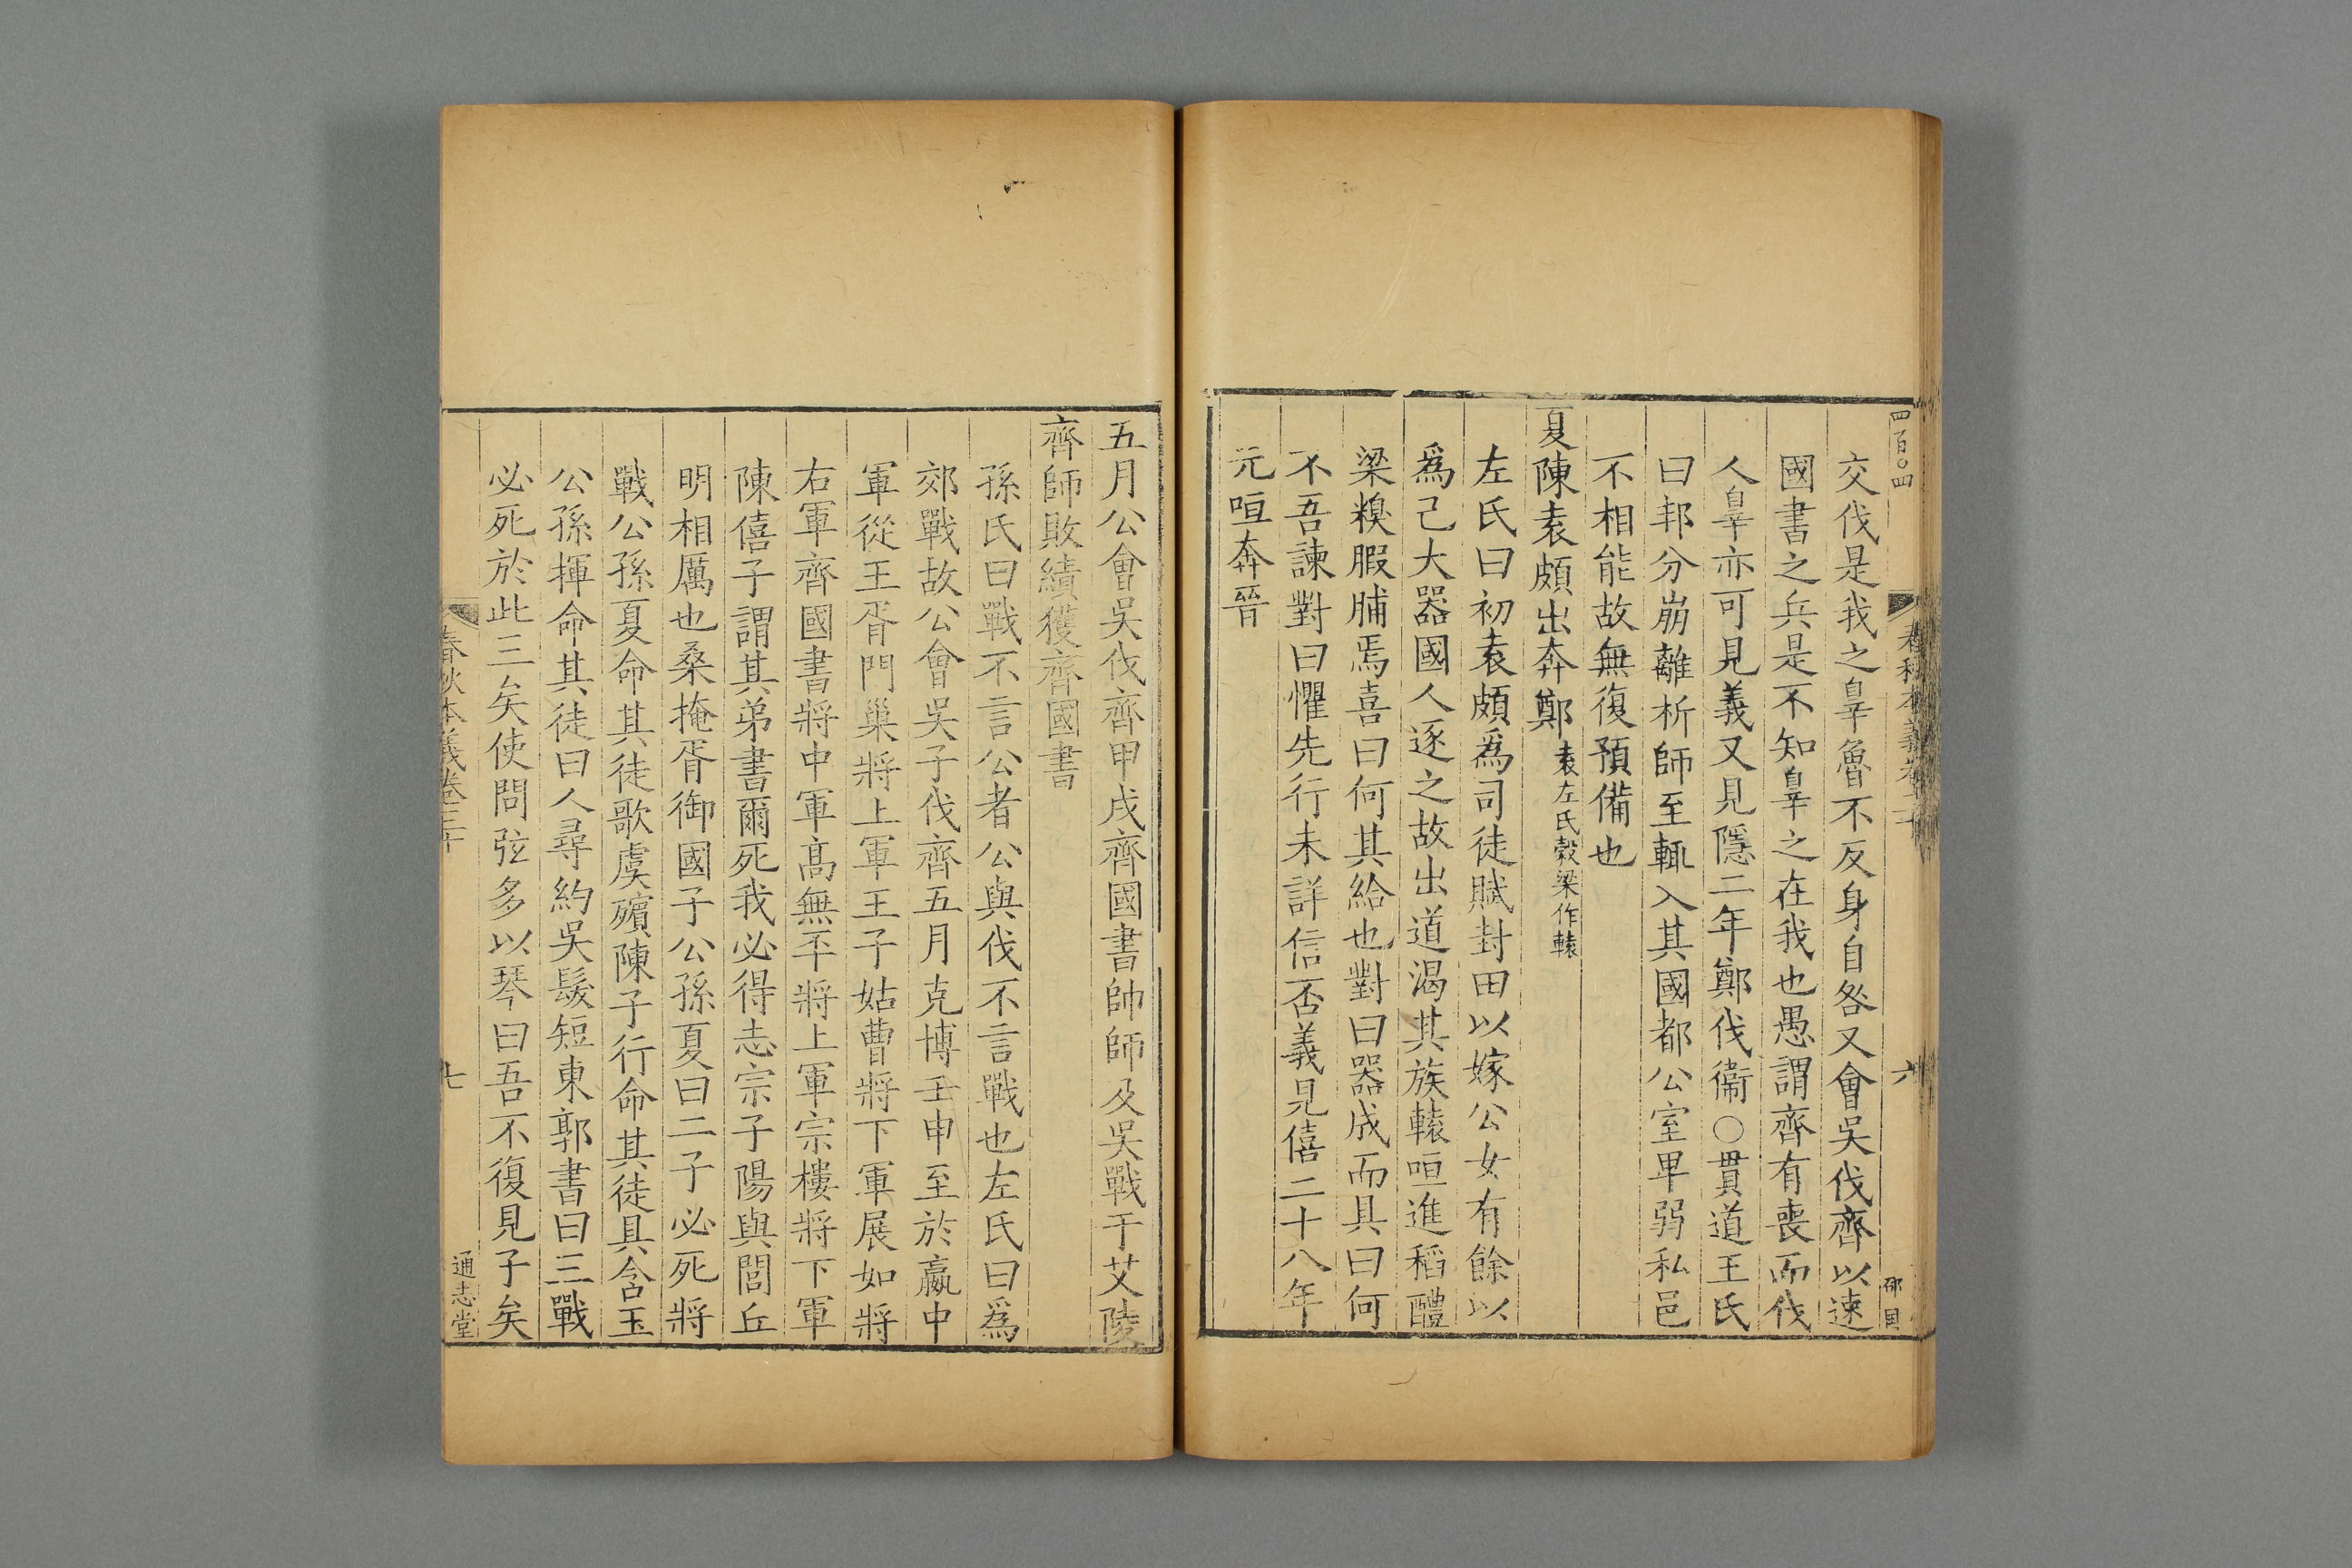 四百〇四
春秋本義卷三十
六
邵國
交伐是我之辠魯不反身自咎又會吳伐齊以速
國書之兵是不知辠之在我也愚謂齊有喪而伐
人辠亦可見義又見隱二年鄭伐衞○貫道王氏
曰邦分崩離析師至輒入其國都公室卑弱私邑
不相能故無復預備也
夏陳袁頗出奔鄭袁左氏穀梁作轅
左氏曰初袁頗爲司徒賦封田以嫁公女有餘以
爲己大器國人逐之故出道渴其族轅咺進稻醴
梁糗腶脯焉喜曰何其給也對曰器成而具曰何
不吾諫對曰懼先行未詳信否義見僖二十八年
元咺奔晉
五月公會吳伐齊甲戌齊國書帥師及吳戰于艾陵
齊師敗績獲齊國書
孫氏曰戰不言公者公與伐不言戰也左氏曰爲
郊戰故公會吳子伐齊五月克博壬申至於嬴中
軍從王胥門巢將上軍王子姑曹將下軍展如將
右軍齊國書將中軍高無㔻將上軍宗樓將下軍
陳僖子謂其弟書爾死我必得志宗子陽與閭丘
明相厲也桑掩胥御國子公孫夏曰二子必死將
戰公孫夏命其徒歌虞殯陳子行命其徒具含玉
公孫揮命其徒曰人尋約吳髮短東郭書曰三戰
必死於此三矣使問弦多以琴曰吾不復見子矣
春秋本義卷三十
七
通志堂